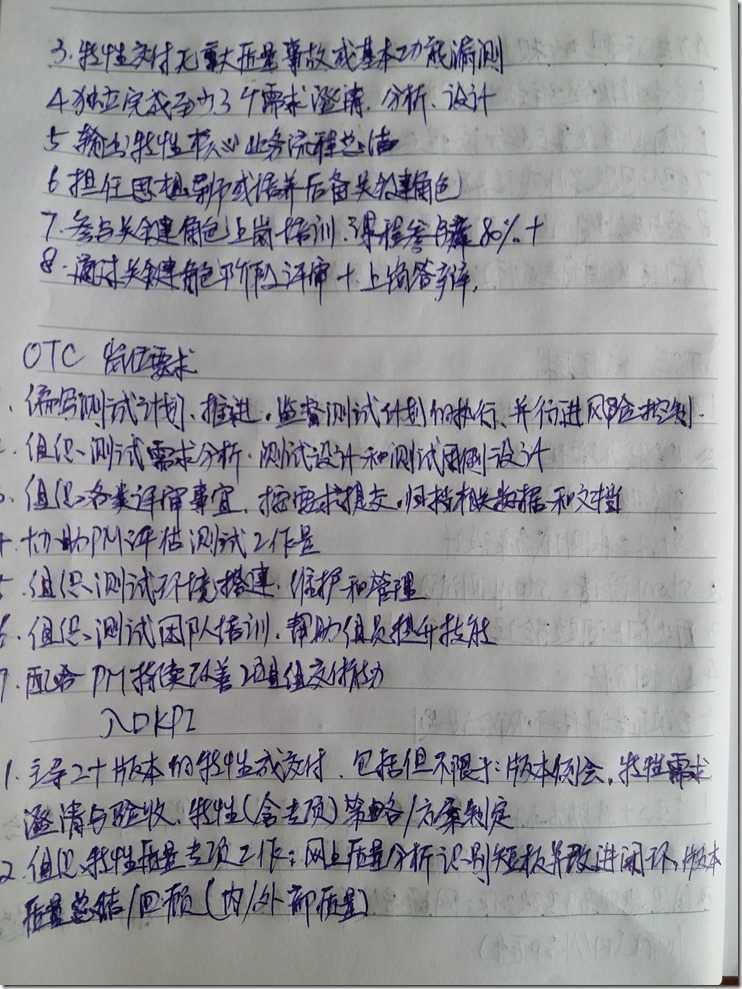 3.特性交付无重大质量事故或基本功能漏测
4.独立完成至少3个需求澄清、分析、设计
5 输出特性核心业务流程总结
6 担任思想导师或培养后备关键角色
7.参与关键角色上岗培训,课程参与80%+
8.通过关键角色阶段评审+上岗答辩,
OTC 岗位要求
编写测试计划、推进、监督测试计划的执行、并行进风险控制.
组织、测试需求分析、测试设计和测试用例设计
组织各类评审事宜,按要求提交,归档相关数据和文档
4.协助PM评估测试工作量
组织测试环境搭建、维护和管理
6.组织测试团队培训,帮助组员提升技能
7.配合PM持续改善项目组交付能力
KPI
1.主导2个版本的特性或交付,包括但不限于:版本例会,特性需求
澄清与验收,特性(含专项)策略/方案制定
2 组织特性质量专项工作:网上质量分析识别短板并改进闭环,版本
质量总结/回顾(内/外部质量)